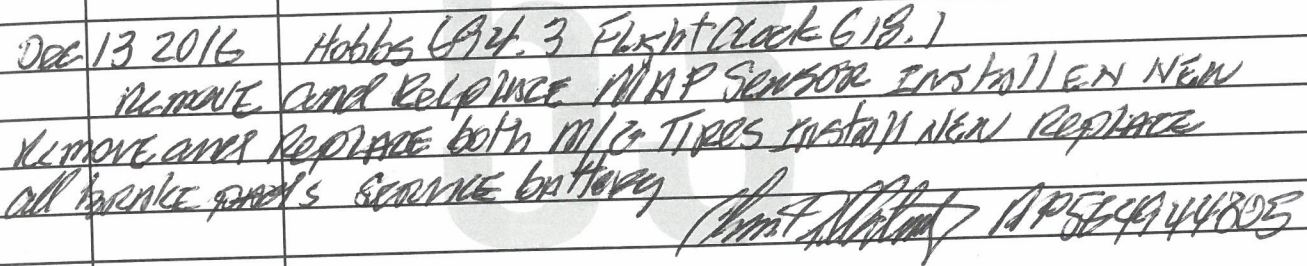 Dec 13 2016 Hobbs 694.3 Flight Clock 618.1
Remove and Relplace MAP Sensor Install EN NEW
Remove and Replace both M/G Tires Install New Replace
all Brake pads Service battery
AP564944805